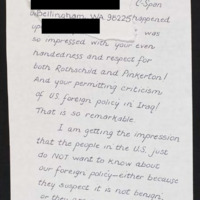 C-Span
Bellingham, WA 98225 happened
up was
so impressed with your even
handedness and respect for
both Rothschild and Pinkerton!
And your permitting criticism
of U.S. foreign policy in Iraq!
That is so remarkable.
I am getting the impression
that the people in the U.S. just
do NOT want to know about
our foreign policy—either because
they suspect it is not benign,
or they